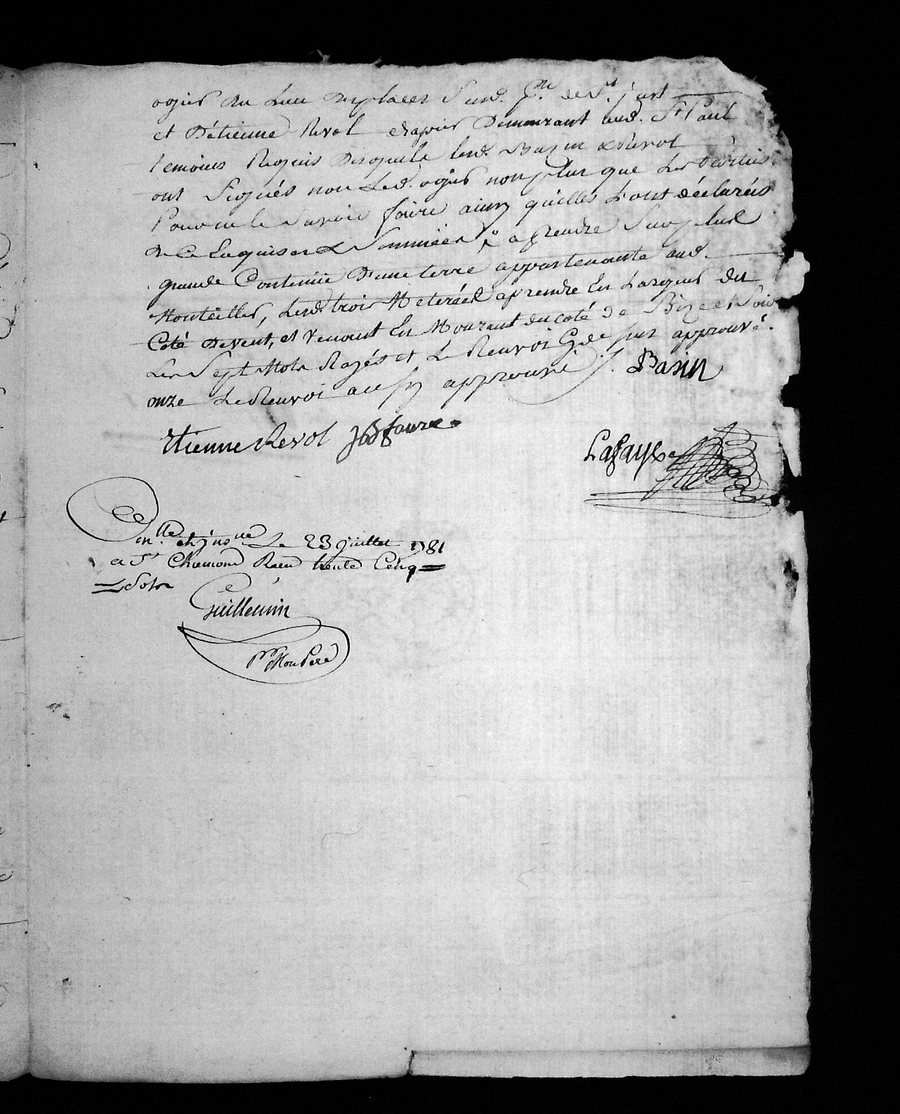 ogier du Lieu Desplaces Surd. p.sse de St. just
et D'etienne Revol drapier Demeurant aud. St. Paul
temoins Requis Desquels led. Basin & Revol
ont Signés non Led. ogier non plus que Les Parties
Pour ne le Savoir faire ainsy quelles L'ont déclarées
De ce Enquises & Sommées à prendre Sur plus
grande Contenüe D'une terre appartenante aud.
Monteilles, Lesd. trois Meterées a prendre En Largeur du
Coté de vent, et venant En Mourant du coté de Bize
Les Sept Mots Rayés et Le Renvoi Cy de sus approuvé.
onze Le Renvoi aussy approuvé. Basin
Etienne Revol faure
Lafaye
Con.lle et jnsinué Le 23 juillet 1781
a St. Chamond Receu trente Cinq
Sols
Guillemin
pr. Mon Pere